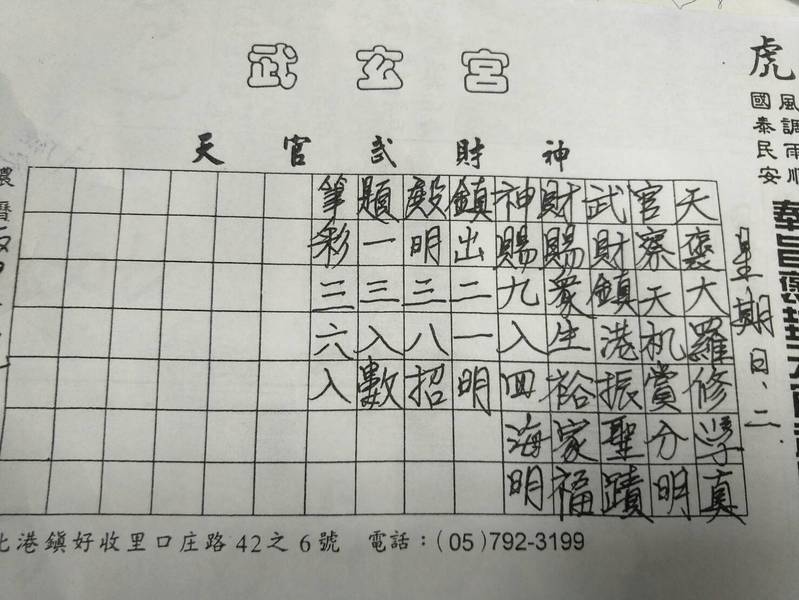 武玄宮
天官武財神
虎
風調雨順
國泰民安
星期日、二
天褒大羅修學真
官察天机賞分明
武財鎮港振聖蹟
財賜眾生裕家福
神賜九入四海明
鎮出二一明
殿明三八招
題一三入數
筆彩三六入
北港鎮好收里口庄路42之6號 電話：(05)792-3199